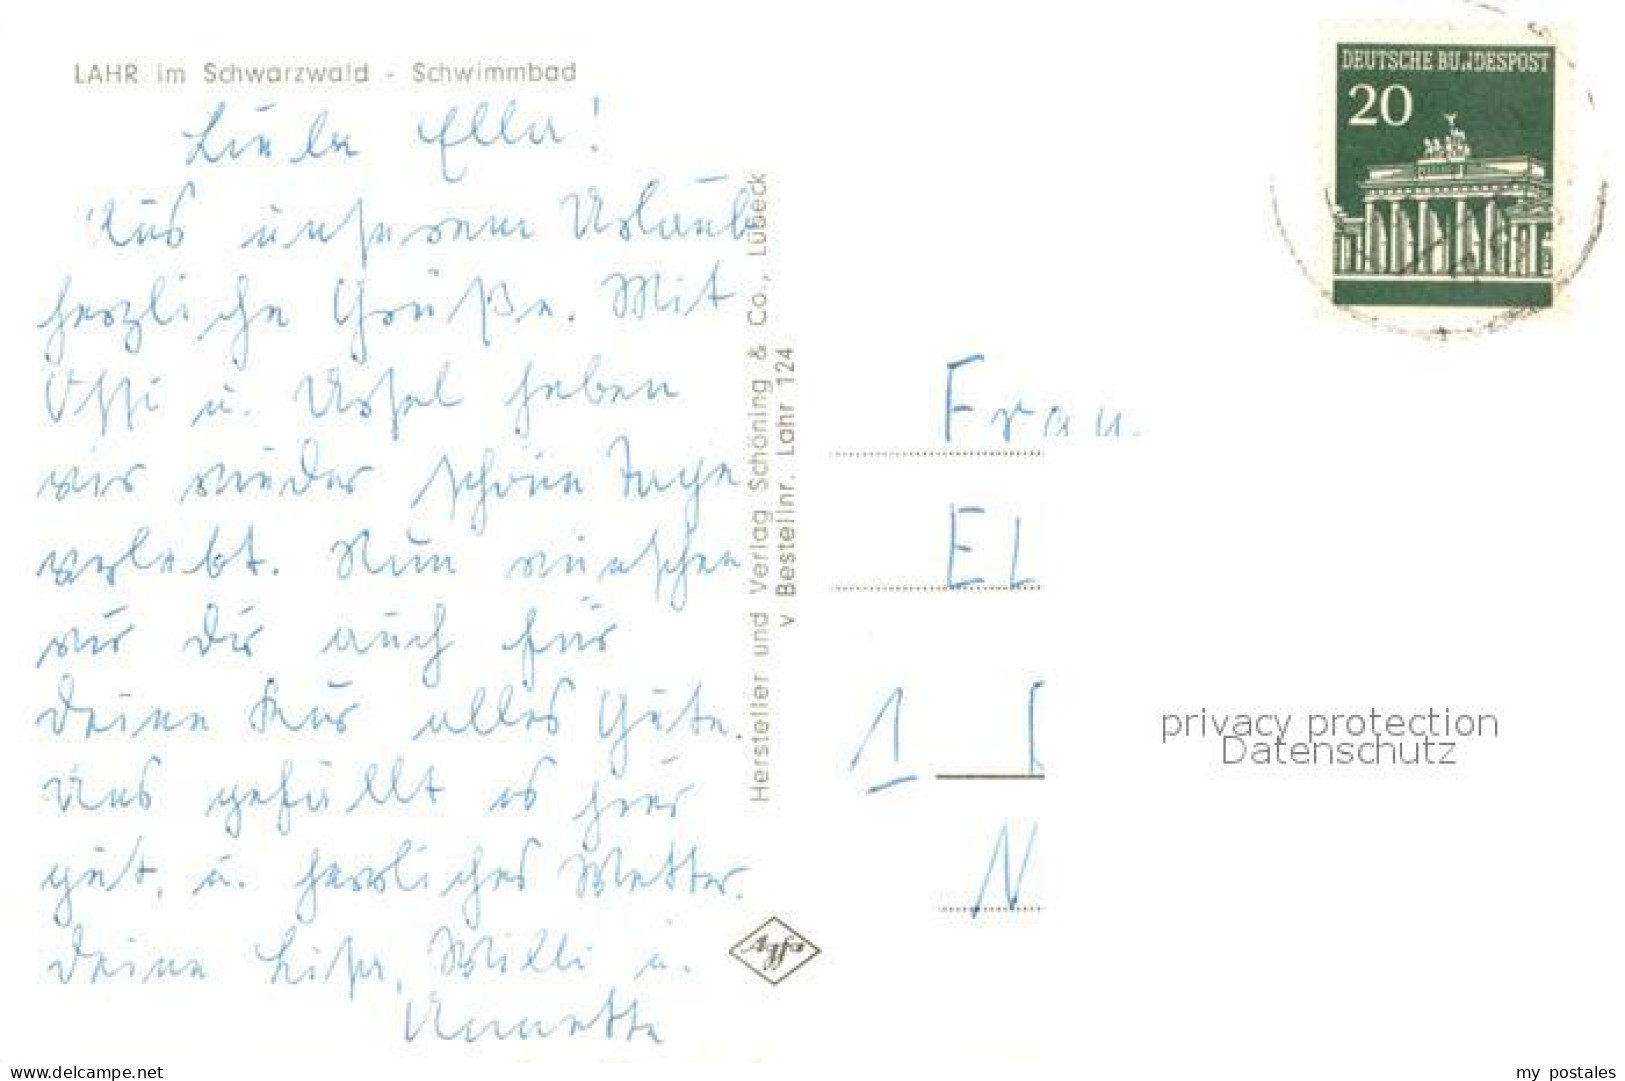 LAHR im Schwarzwald - Schwimmbad
Liebe Ella!
Aus unserem Urlaub
herzliche Grüße. Mit
Ossi u. Ursel haben
wir wieder schöne Tage
verlebt. Nun wünschen
wir Dir auch für
Deine Kur alles Gute.
Uns gefällt es hier
gut, u. herrliches Wetter.
Deine Lisa, Willi u.
Annette
Hersteller und Verlag Schöning & Co., Lübeck
v Bestellnr. Lahr 124
Agfa
DEUTSCHE BUNDESPOST
20
Frau
El
1
N
privacy protection
Datenschutz
oldthing.de
my_postales